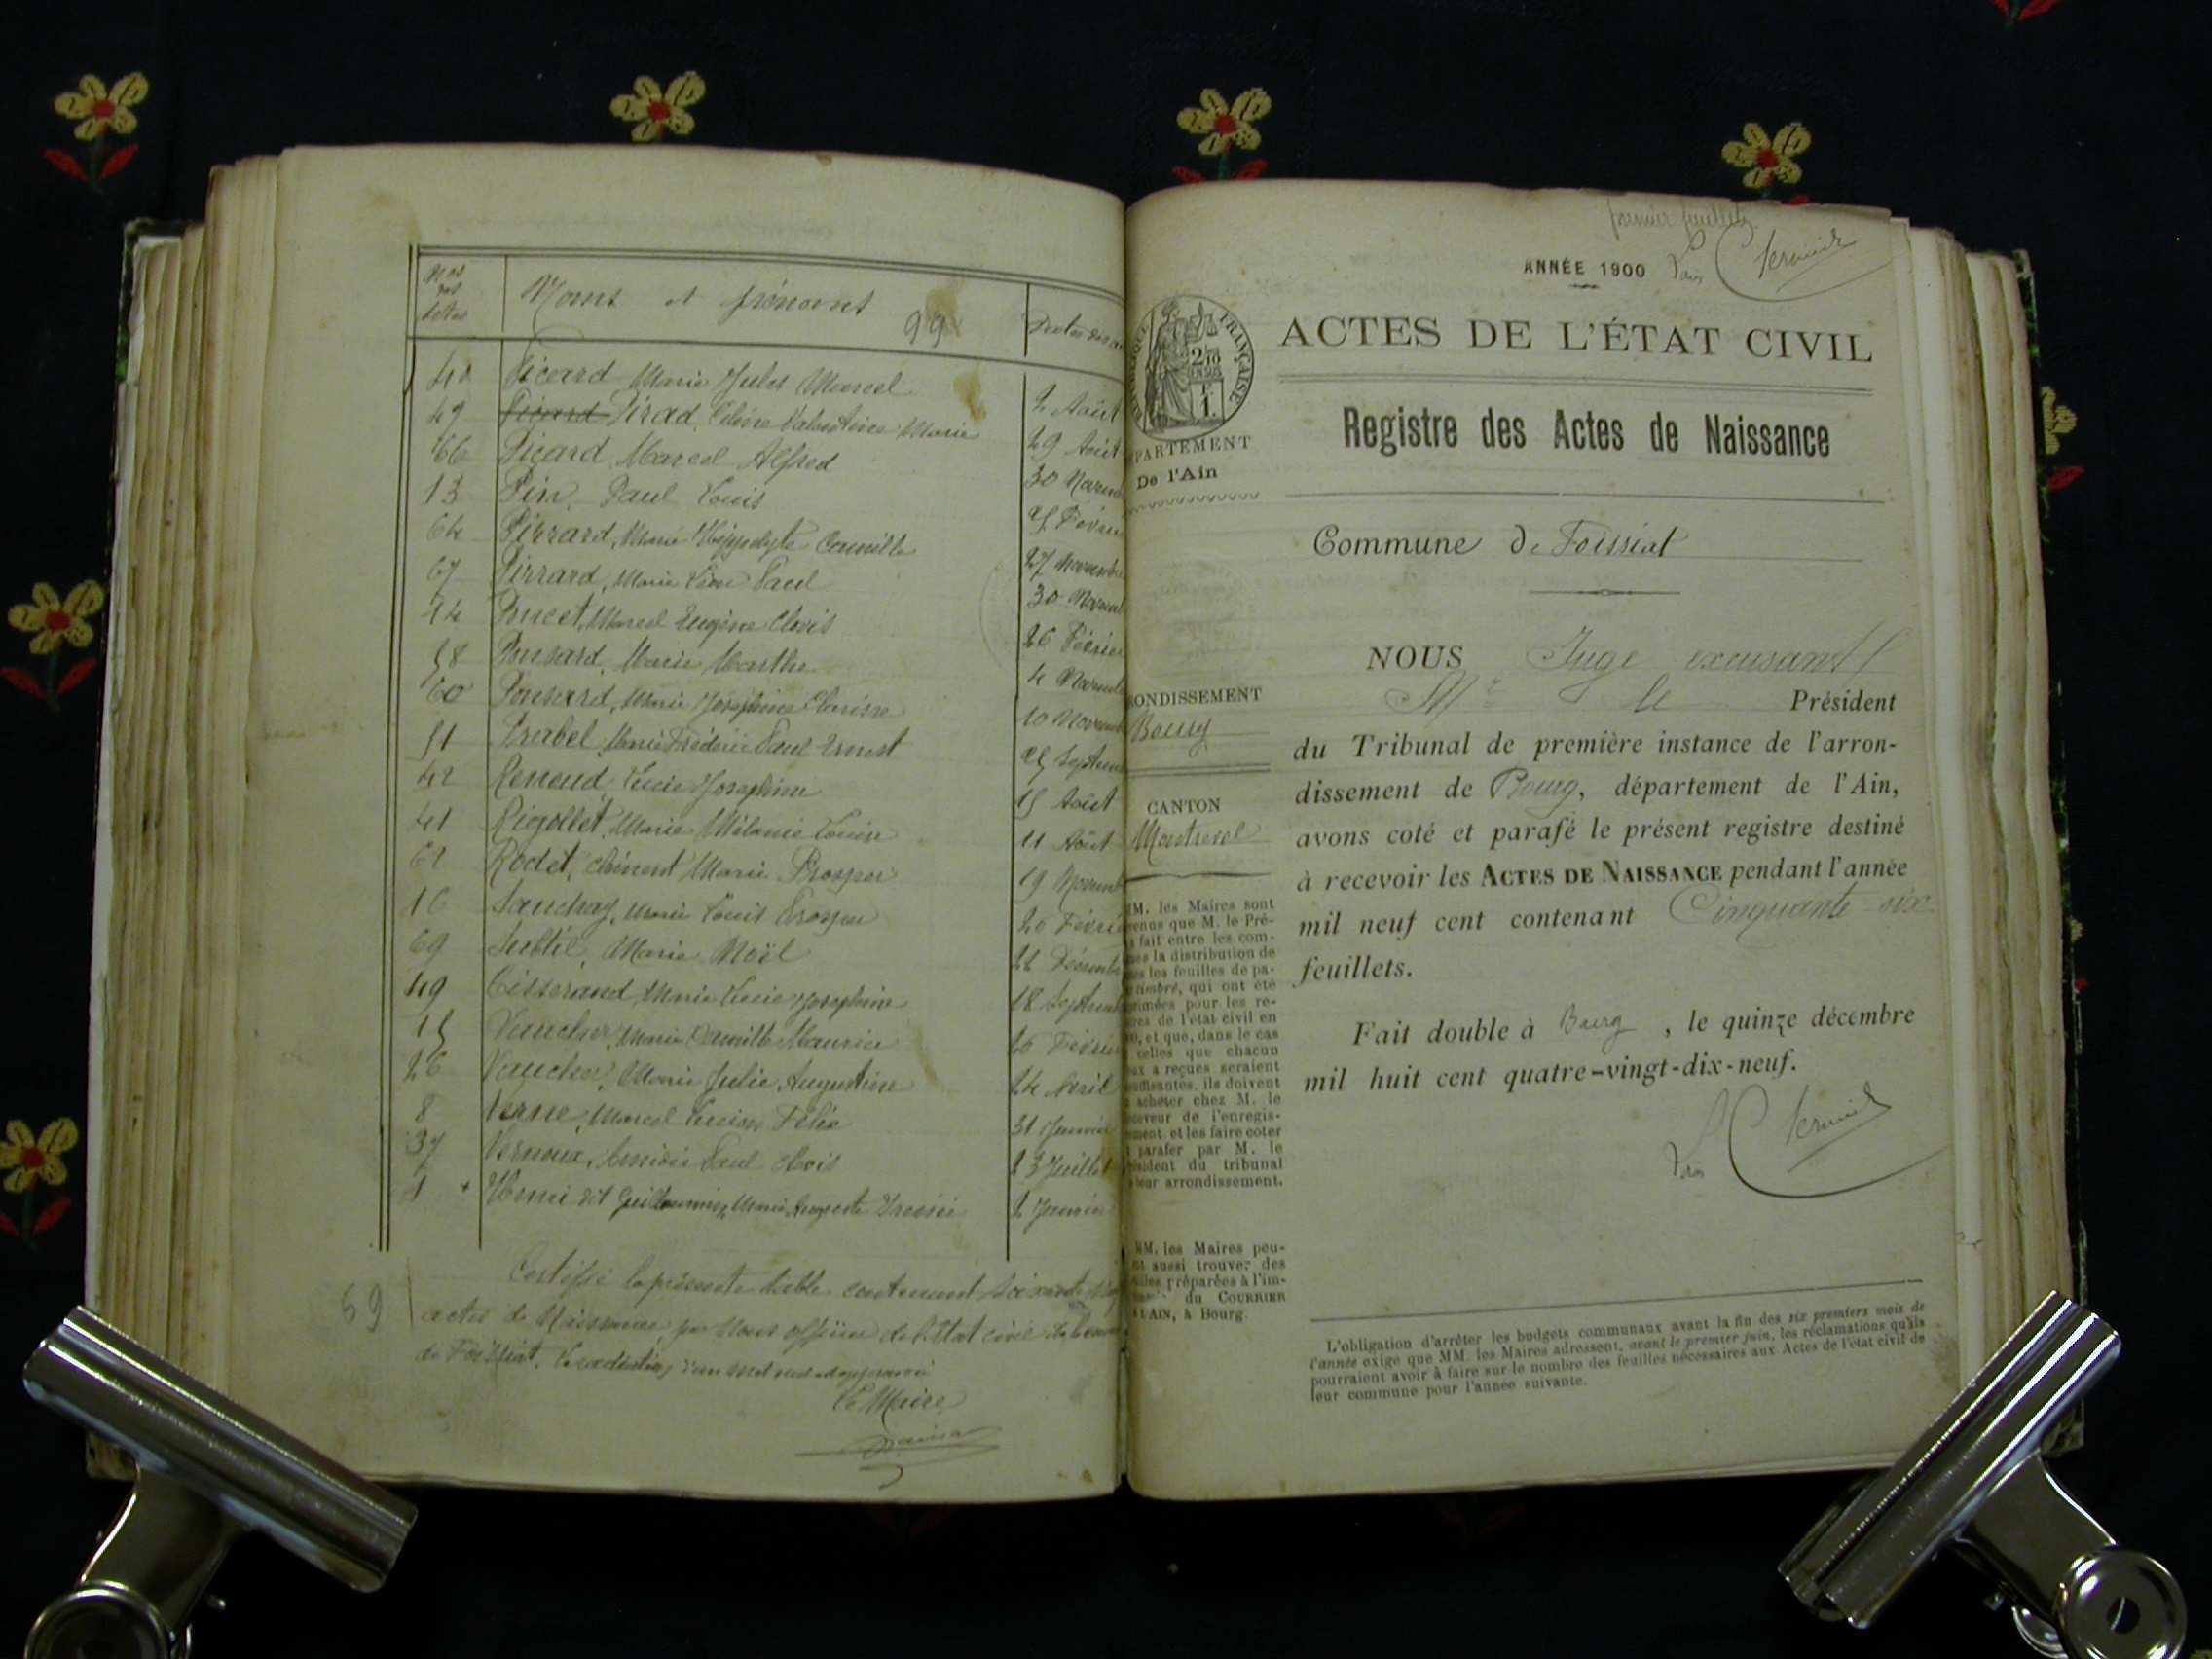 Nos des Actes
Noms et prénoms
99
Dates des
40 Picard Marie Jules Marcel 2 Août
49 Picard Pirad, Marie 29 Août
66 Picard Marcel Alfred 30 Novem
13 Pin, Paul Louis 25 Févrie
64 Pirrard, Marie Hippolyte Camille 27 Novembre
67 Pirrard, Marie Léon Paul 30 Novemb
14 Poncet, Marcel Eugène Clovis 26 Févrie
58 Ponsard, Marie Marthe 4 Novemb
60 Ponsard, Marie Joséphine Clarisse 10 Novemb
51 Prabel, Marie Frédéric Paul Ernest 25 Septem
42 Renoud, Lucie Joséphine 15 Août
41 Rigollet, Marie Mélanie Louise 11 Août
62 Rodet, Clément Marie Prosper 19 Novemb
16 Sauchay, Marie Louis Prosper 26 Févrie
69 Subtil, Marie Noël 22 Décemb
49 Tisserand, Marie Lucie Joséphine 18 Septemb
15 Vaucher, Marie Camille Maurice 26 Févrie
26 Vaucher, Marie Julie Augustine 24 Avril
8 Verne, Marcel Lucien Félix 31 Janvier
37 Vernoux, Amédée Paul Clovis 23 Juillet
1 + dit Guillaumin, Marie Auguste 2 Janvier
Certifié la présente table contenant soixante
69 actes de Naissance, par Nous officier de l'Etat civil de la
de Foissiat.
Le Maire
premier feuillet
ANNÉE 1900
ACTES DE L'ÉTAT CIVIL
Registre des Actes de Naissance
FRANÇAISE
PARTEMENT
De l'Ain
Commune de Foissiat
NOUS Juge excusant
Mr le Président
du Tribunal de première instance de l'arron-
dissement de Bourg, département de l'Ain,
avons coté et parafé le présent registre destiné
à recevoir les ACTES DE NAISSANCE pendant l'année
mil neuf cent contenant Cinquante six
feuillets.
Fait double à Bourg, le quinze décembre
mil huit cent quatre-vingt-dix-neuf.
ONDISSEMENT
Bourg
CANTON
Montrevel
MM. les Maires sont
venus que M. le Pré-
fait entre les com-
la distribution de
les feuilles de pa-
timbré, qui ont été
rimées pour les re-
res de l'état civil en
, et que, dans le cas
celles que chacun
ux a reçues seraient
uffisantes, ils doivent
acheter chez M. le
ceveur de l'enregis-
ment et les faire coter
parafer par M. le
ésident du tribunal
leur arrondissement.
MM. les Maires peu-
nt aussi trouver des
illes préparées à l'im-
du COURRIER
L'AIN, à Bourg.
L'obligation d'arrêter les budgets communaux avant la fin des six premiers mois de
l'année exige que MM. les Maires adressent, avant le premier juin, les réclamations qu'ils
pourraient avoir à faire sur le nombre des feuilles nécessaires aux Actes de l'état civil de
leur commune pour l'année suivante.